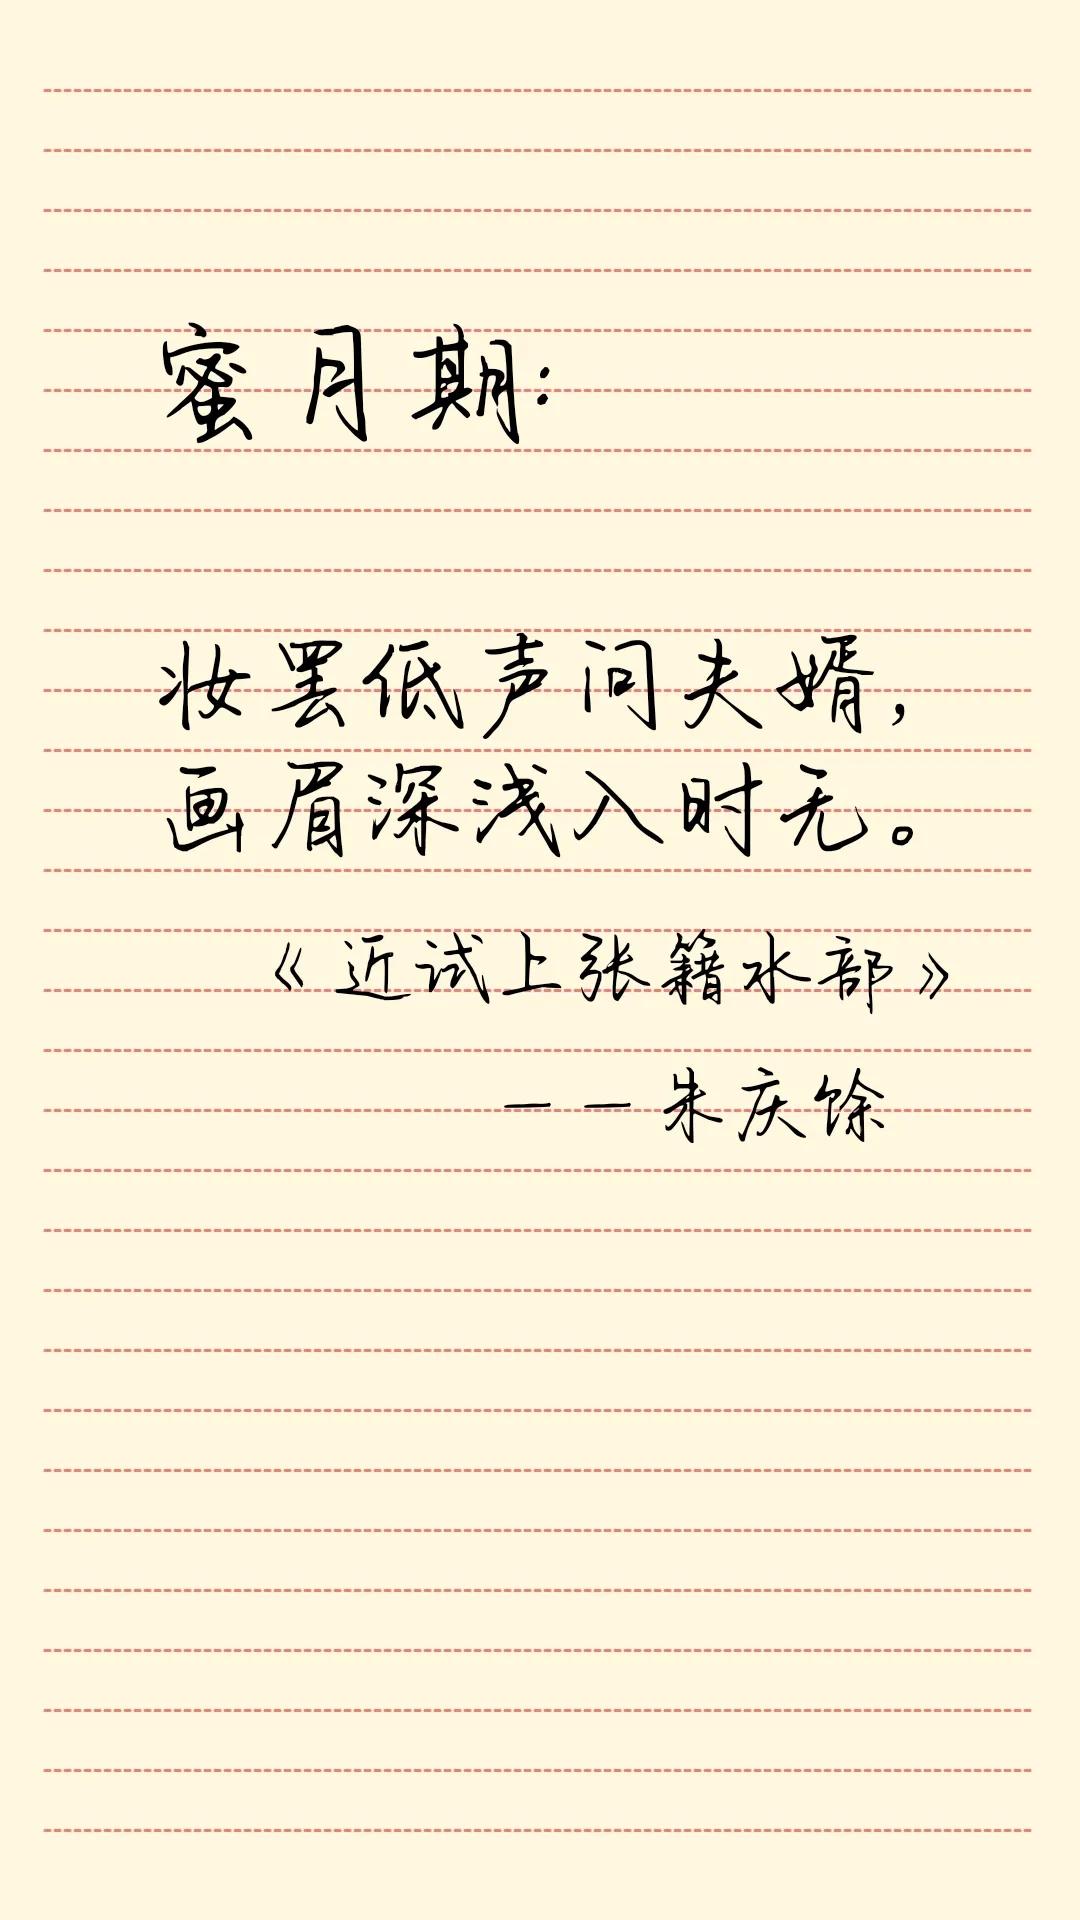 蜜月期:
妆罢低声问夫婿,
画眉深浅入时无。
《近试上张籍水部》
——朱庆馀